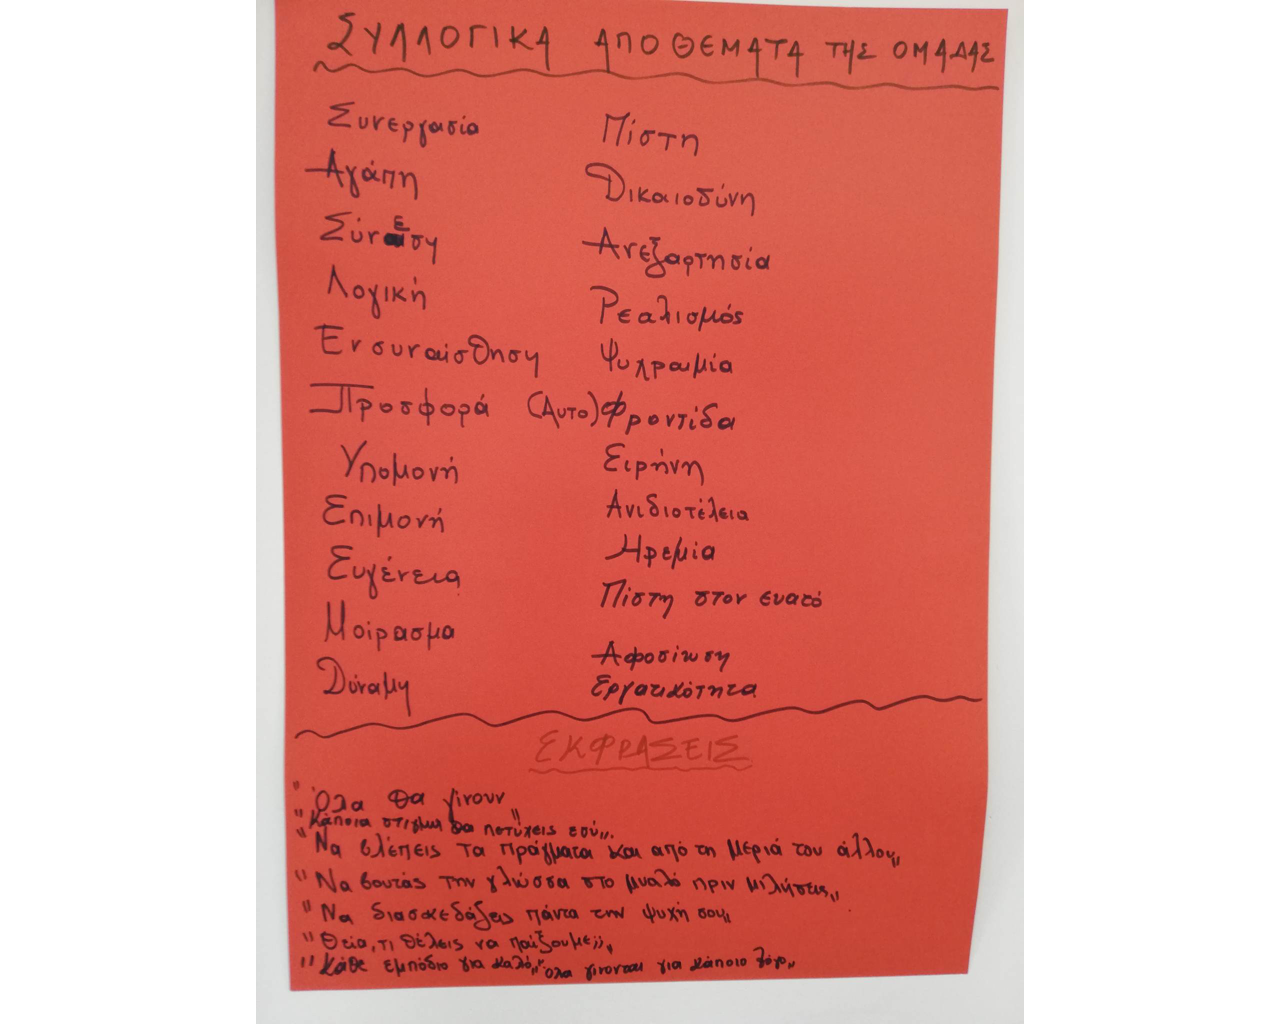 ΣΥΛΛΟΓΙΚΑ ΑΠΟΘΕΜΑΤΑ ΤΗΣ ΟΜΑΔΑΣ
Συνεργασία
Αγάπη
Σύνεση
Λογική
Ενσυναίσθηση
Προσφορά
Υπομονή
Επιμονή
Ευγένεια
Μοίρασμα
Δύναμη
Πίστη
Δικαιοσύνη
Ανεξαρτησία
Ρεαλισμός
Ψυχραιμία
(Αυτο)Φροντίδα
Ειρήνη
Ανιδιοτέλεια
Ηρεμία
Πίστη στον ευατό
Αφοσίωση
Εργατικότητα
ΕΚΦΡΑΣΕΙΣ
"Όλα θα γίνουν"
"Κάποια στιγμή θα πετύχεις εσύ".
"Να βλέπεις τα πράγματα και από τη μεριά του άλλου"
"Να βουτάς την γλώσσα στο μυαλό πριν μιλήσεις"
"Να διασκεδάζεις πάντα την ψυχή σου"
"Θεία, τι θέλεις να παίξουμε;;"
"Κάθε εμπόδιο για καλό" "Όλα γίνονται για κάποιο λόγο"